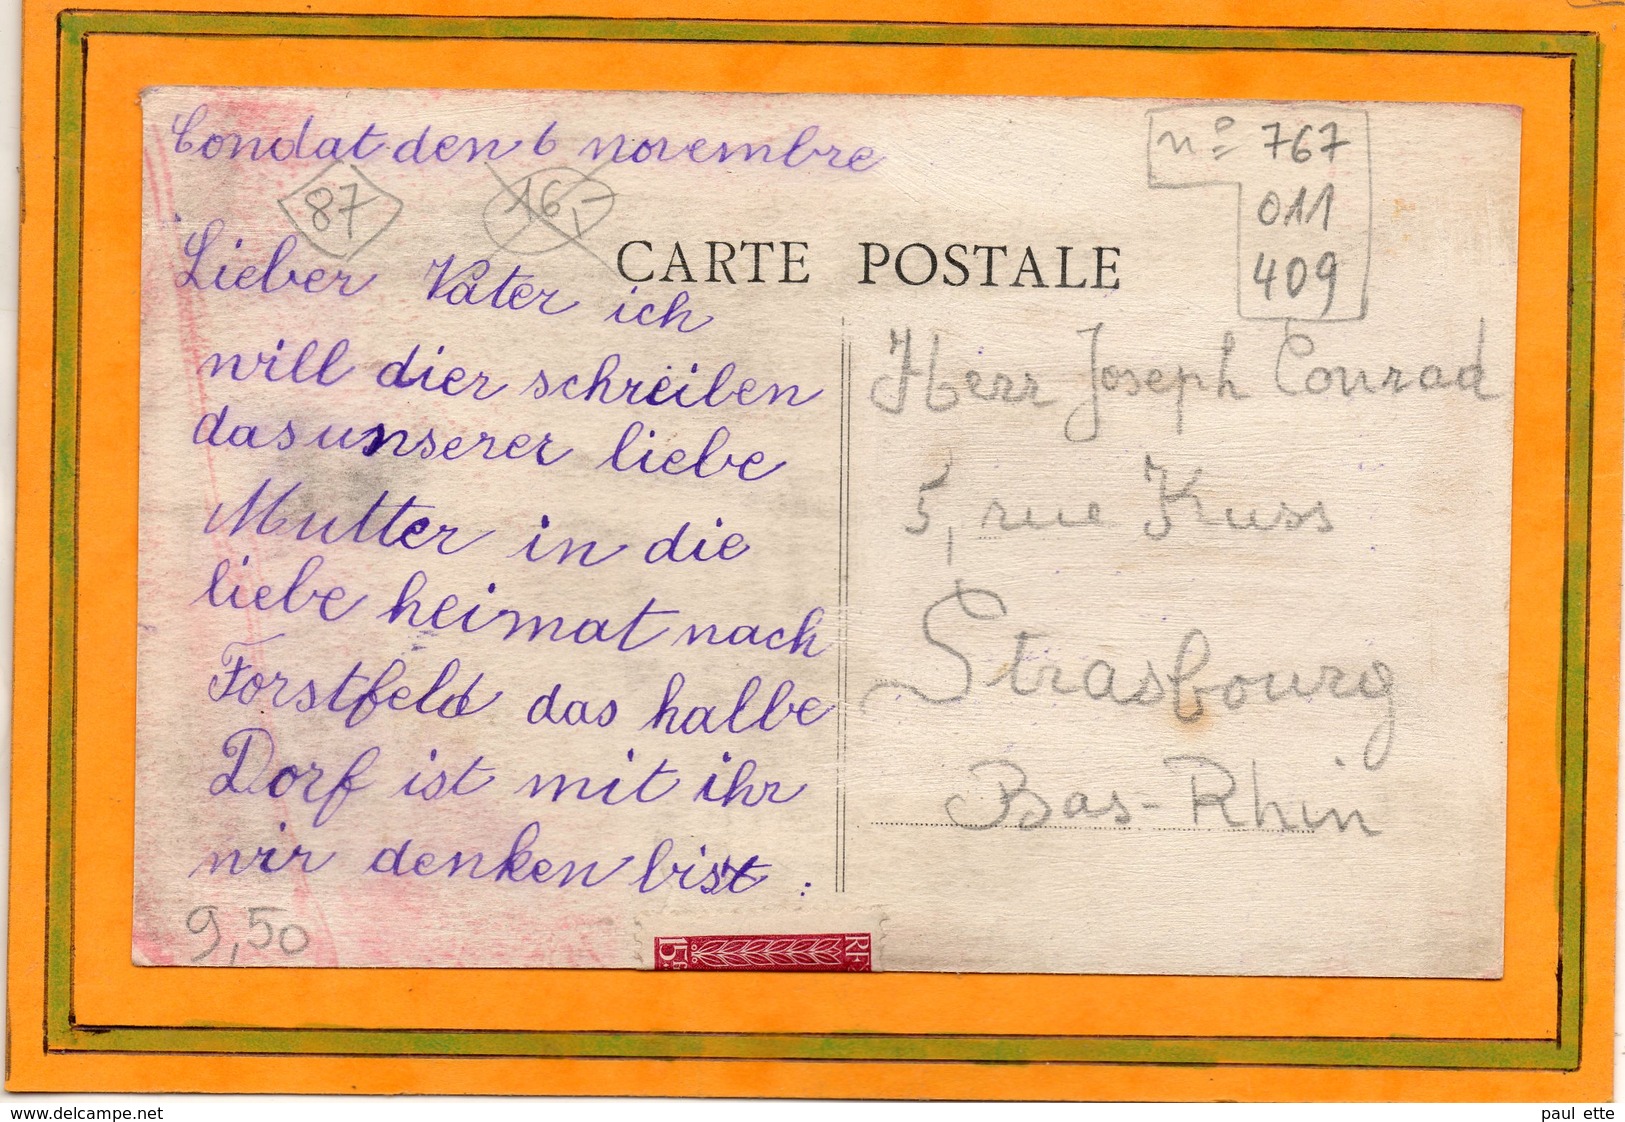 Condat den 6 novembre
87
16,-
n° 767
011
409
CARTE POSTALE
Lieber Vater ich
will dier schreiben
das unserer liebe
Mutter in die
liebe heimat nach
Forstfeld das halbe
Dorf ist mit ihr
wir denken bist :
9,50
Herr Joseph Conrad
5, rue Kuss
Strasbourg
Bas-Rhin
15c RF
www.delcampe.net
paul ette